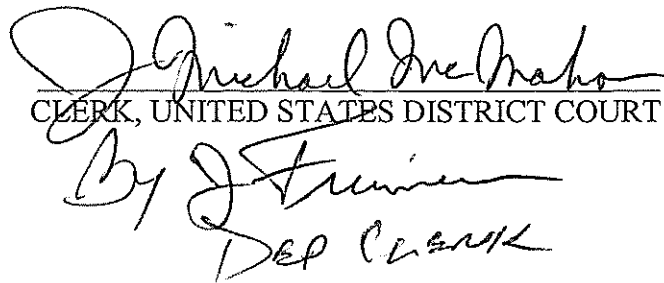 J Michael McMahon
CLERK, UNITED STATES DISTRICT COURT
By J
DEP CLERK